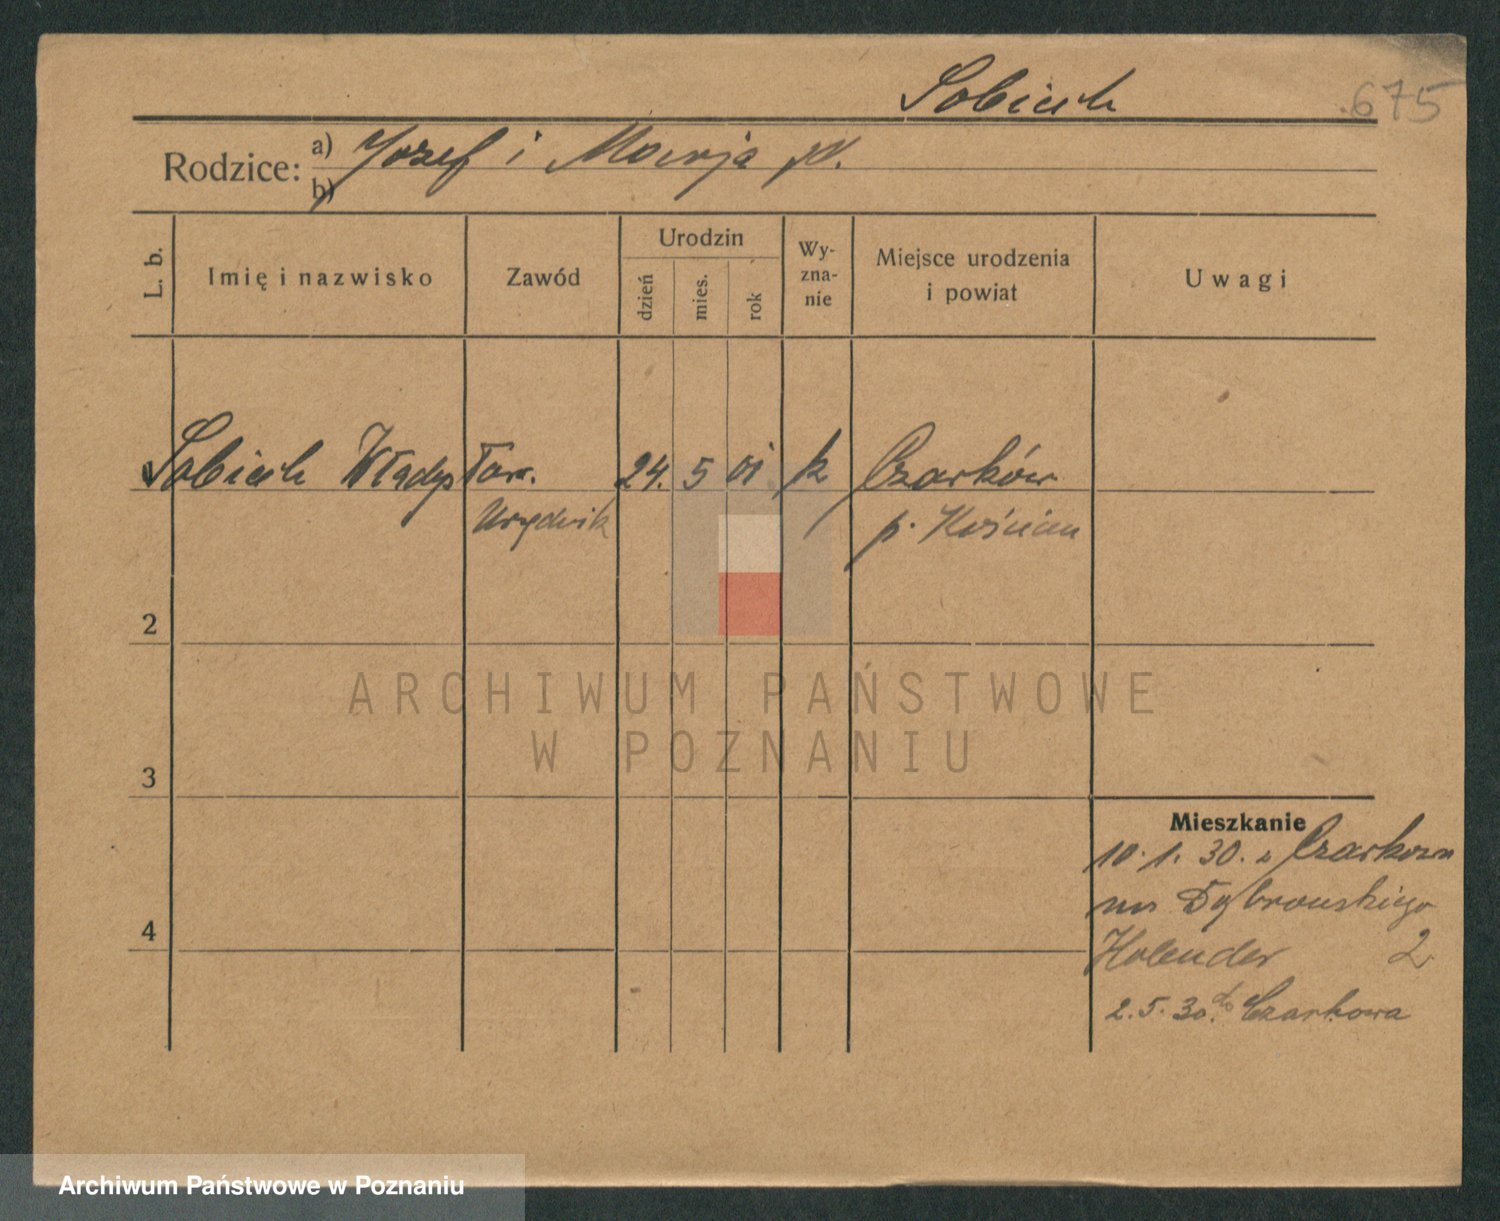 Sobiech
675
Rodzice: a) Józef i Marja N.
b)
L. b.
Imię i nazwisko
Zawód
Urodzin
dzień
mies.
rok
Wy-
zna-
nie
Miejsce urodzenia
i powiat
Uwagi
Sobiech Władysław. 24. 5 01 k Czarków
Urzędnik p. Kościan
2
3
4
ARCHIWUM PAŃSTWOWE
W POZNANIU
Mieszkanie
10. 1. 30. z Czarkowa
na Dąbrowskiego
Holender 2
2. 5. 30. do Czarkowa
Archiwum Państwowe w Poznaniu